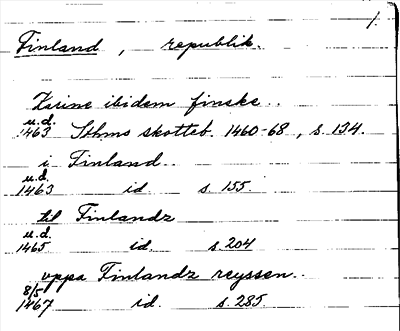 1.
Finland, republik.
Xrine ibidem finske..
u.d.
1463 Sthms skotteb. 1460-68, s. 134.
i Finland..
u.d.
1463 id s. 155.
til Finlandz
u.d.
1465 id. s. 204
vppa Finlandz reyssen..
8/5
1467 id. s. 285.